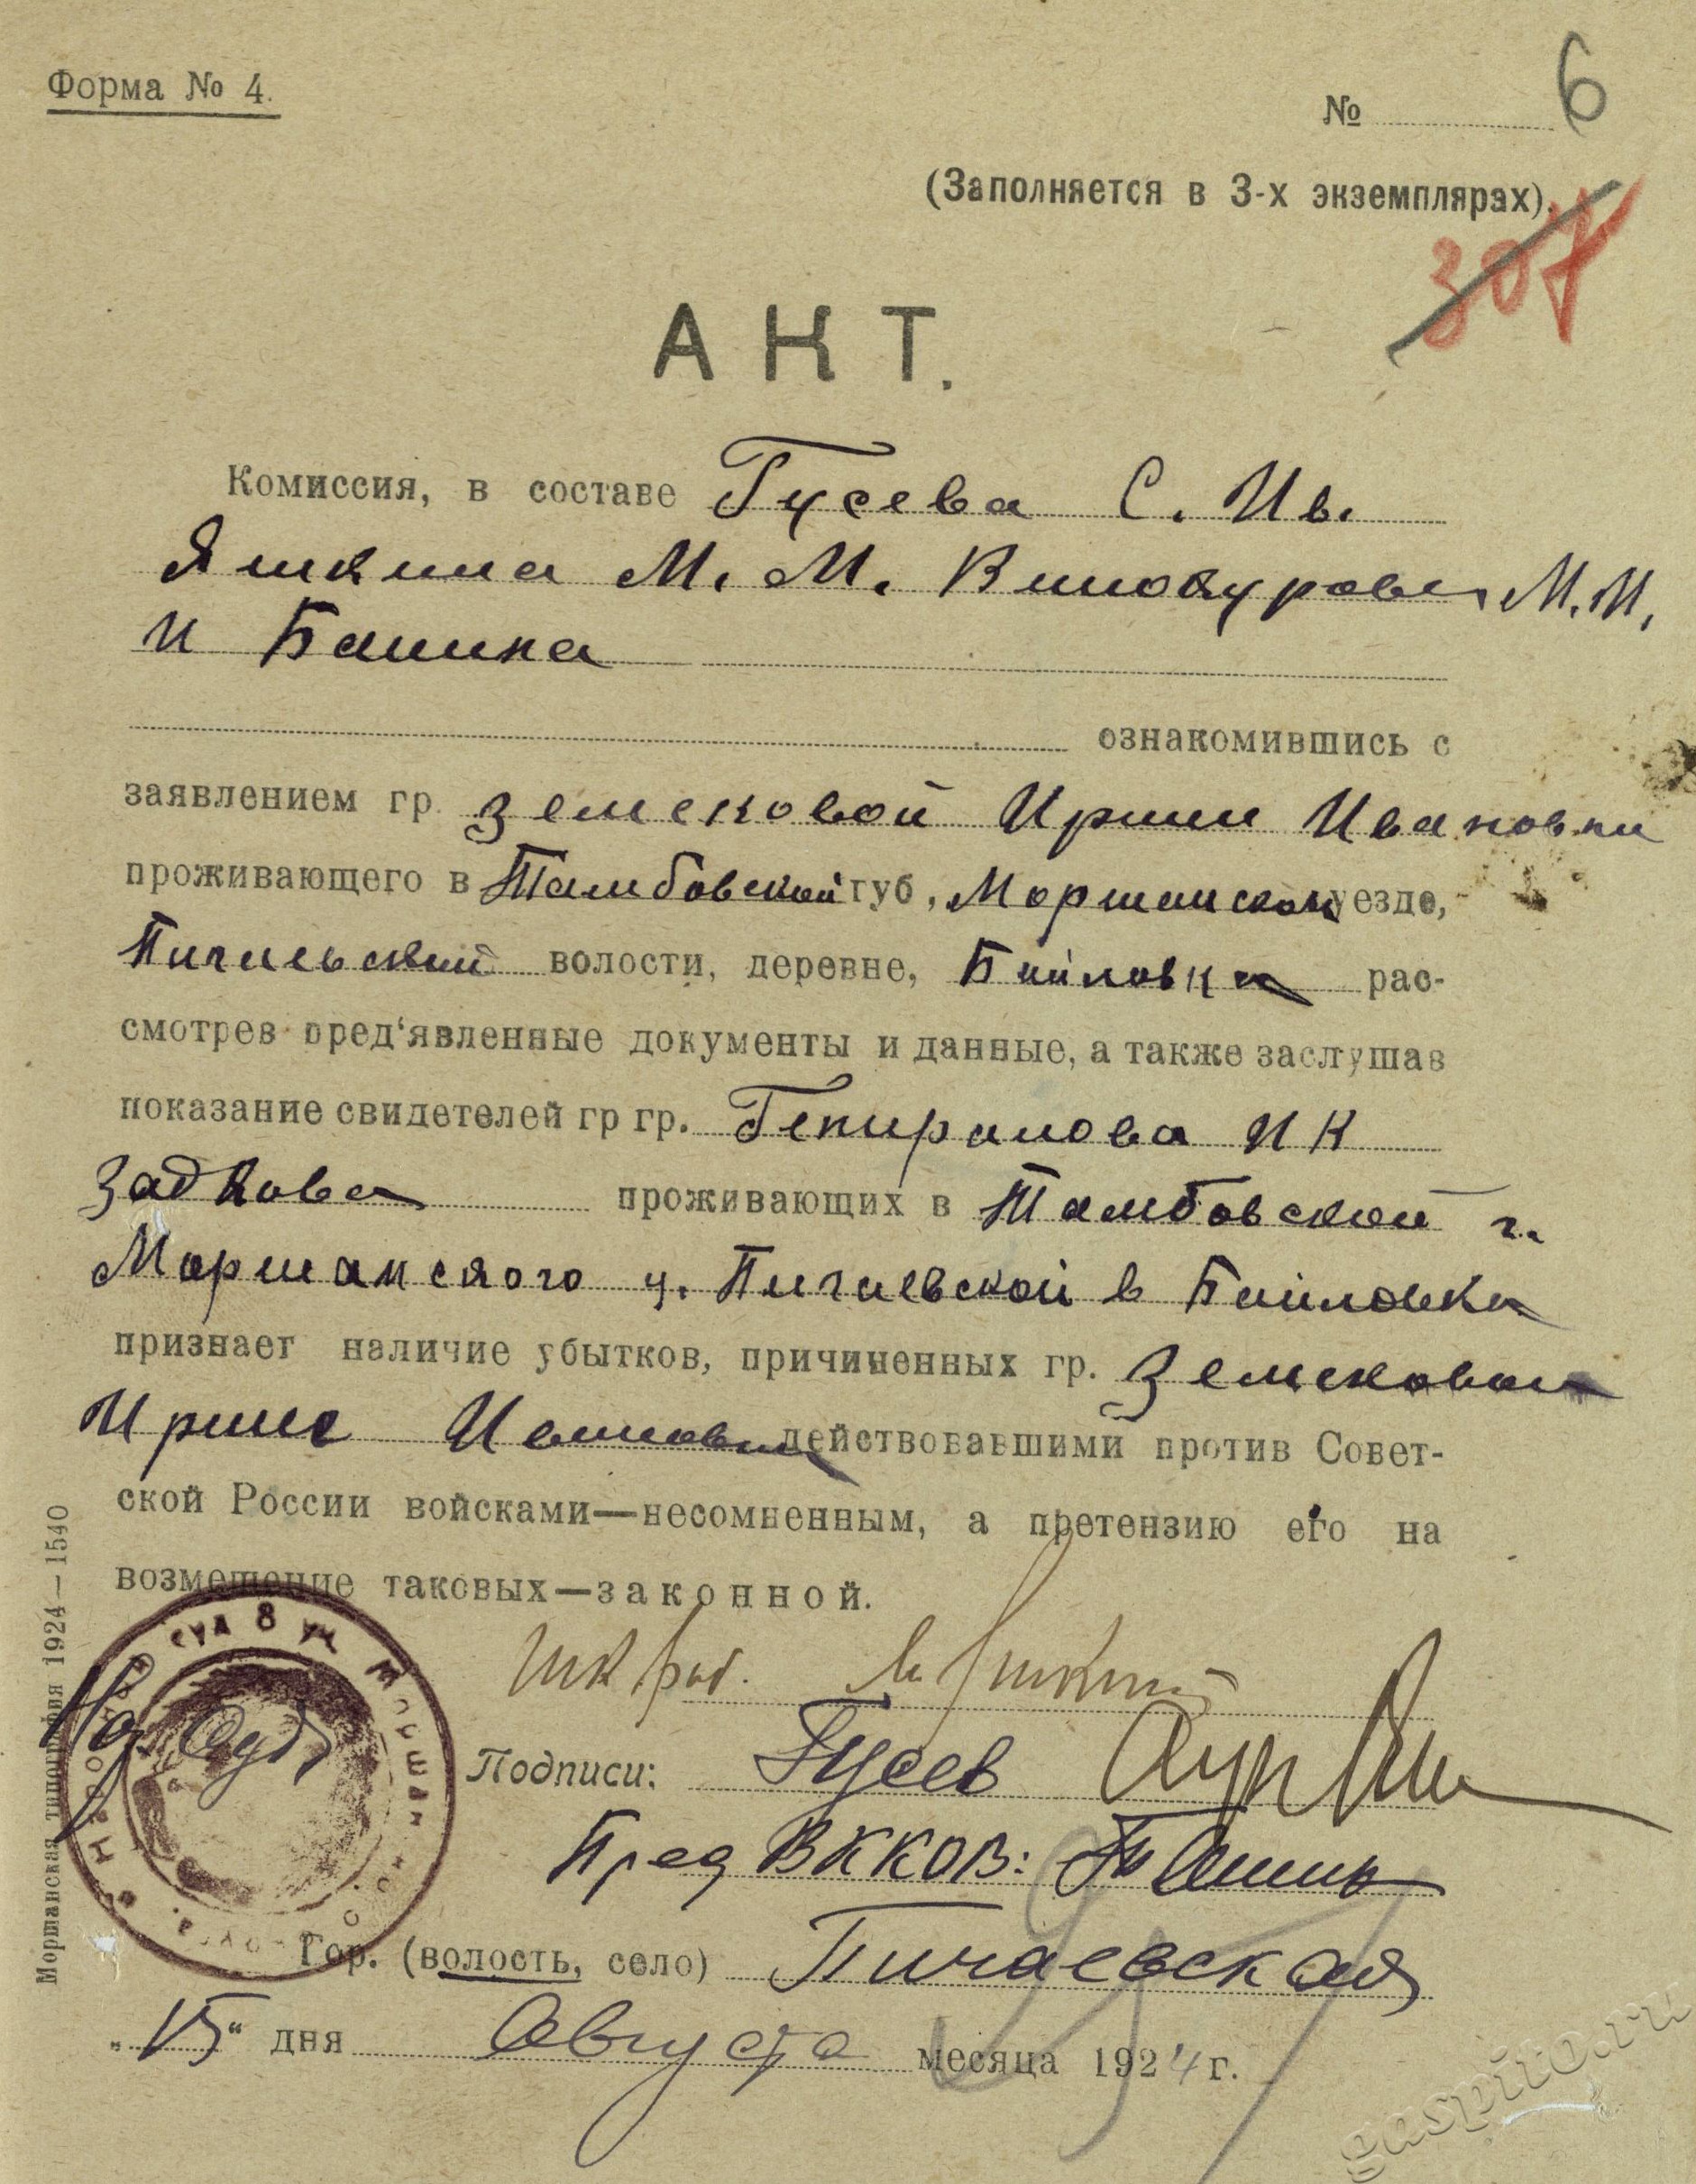 Форма № 4.
№ 6
(Заполняется в 3-х экземплярах).
307
АКТ.
Комиссия, в составе Гусева С. Ив.
Яшкина М. М. Винокурова М. М.
и Башина
ознакомившись с
заявлением гр. Земсковой Ирины Ивановны
проживающего в Тамбовской губ, Моршанском уезде,
волости, деревне, рас-
смотрев пред‘явленные документы и данные, а также заслушав
показание свидетелей гр гр. И К
Задкова проживающих в Тамбовской г.
Моршанского у. Пичаевской в
признает наличие убытков, причиненных гр. Земсковой
Ирине Ивановне действовавшими против Совет-
ской России войсками—несомненным, а претензию его на
возмещение таковых—законной.
Подписи: Гусев
Пред ВККОВ:
Гор. (волость, село) Пичаевская
„15“ дня Августа месяца 1924 г.
Моршанская типография 1924—1540
Народный суд 8 уч Моршан
Нар Судья
gaspito.ru